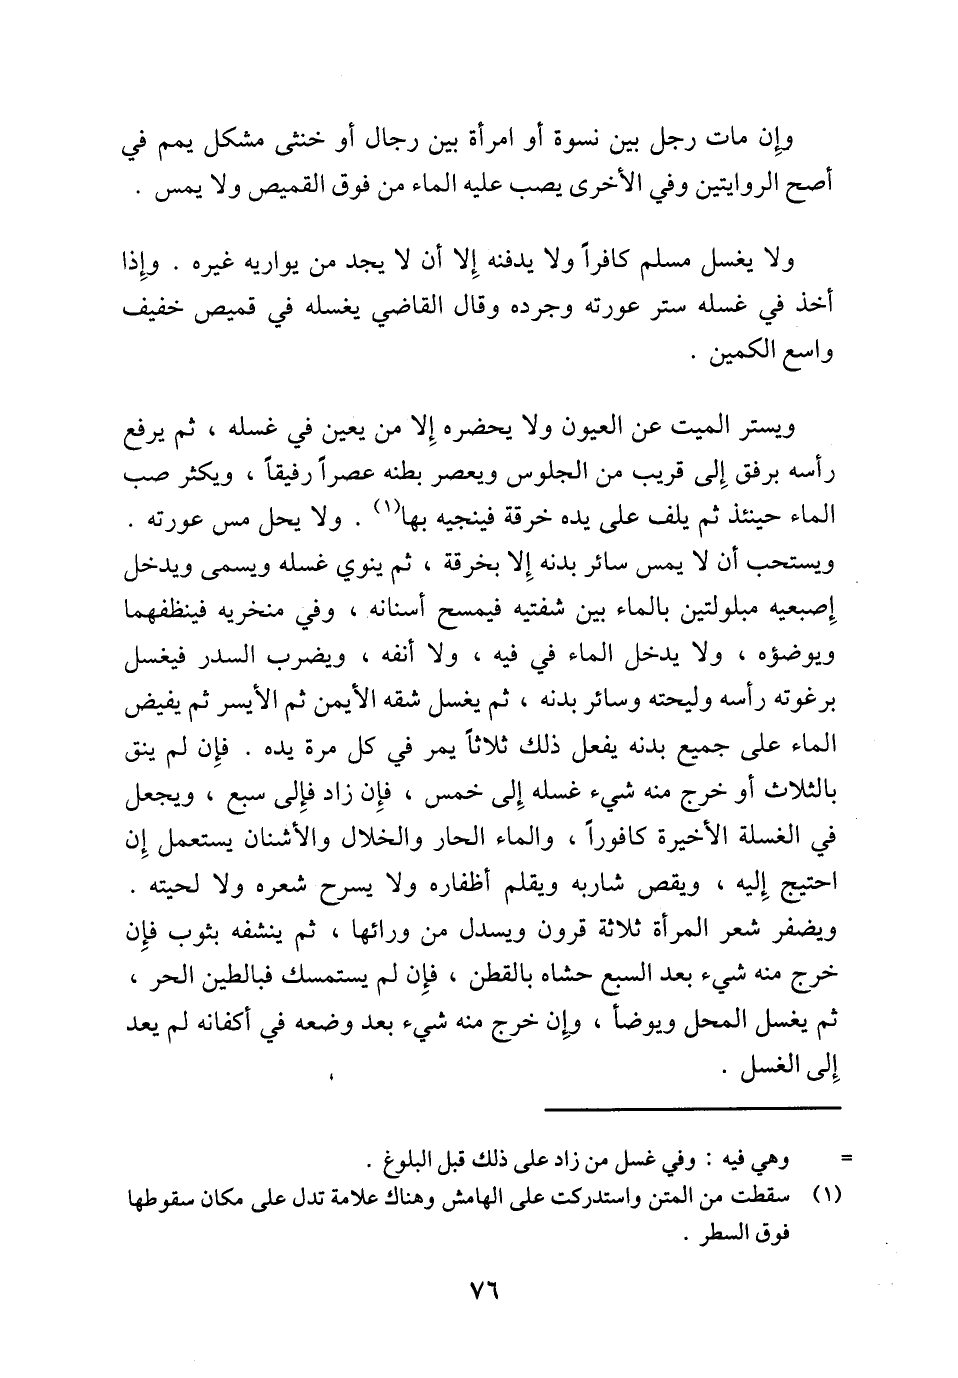 وإن مات رجل بين نسوة أو امرأة بين رجال أو خنثى مشكل يمم في
أصح الروايتين وفي الأخرى يصب عليه الماء من فوق القميص ولا يمس .
ولا يغسل مسلم كافراً ولا يدفنه إلا أن لا يجد من يواريه غيره . وإذا
أخذ في غسله ستر عورته وجرده وقال القاضي يغسله في قميص خفيف
واسع الكمين .
ويستر الميت عن العيون ولا يحضره إلا من يعين في غسله ، ثم يرفع
رأسه برفق إلى قريب من الجلوس ويعصر بطنه عصراً رفيقاً ، ويكثر صب
الماء حينئذ ثم يلف على يده خرقة فينجيه بها(١) . ولا يحل مس عورته .
ويستحب أن لا يمس سائر بدنه إلا بخرقة ، ثم ينوي غسله ويسمى ويدخل
إصبعيه مبلولتين بالماء بين شفتيه فيمسح أسنانه ، وفي منخريه فينظفهما
ويوضؤه ، ولا يدخل الماء في فيه ، ولا أنفه ، ويضرب السدر فيغسل
برغوته رأسه وليحته وسائر بدنه ، ثم يغسل شقه الأيمن ثم الأيسر ثم يفيض
الماء على جميع بدنه يفعل ذلك ثلاثاً يمر في كل مرة يده . فإن لم ينق
بالثلاث أو خرج منه شيء غسله إلى خمس ، فإن زاد فإلى سبع ، ويجعل
في الغسلة الأخيرة كافوراً ، والماء الحار والخلال والأشنان يستعمل إن
احتيج إليه ، ويقص شاربه ويقلم أظفاره ولا يسرح شعره ولا لحيته .
ويضفر شعر المرأة ثلاثة قرون ويسدل من ورائها ، ثم ينشفه بثوب فإن
خرج منه شيء بعد السبع حشاه بالقطن ، فإن لم يستمسك فبالطين الحر ،
ثم يغسل المحل ويوضأ ، وإن خرج منه شيء بعد وضعه في أكفانه لم يعد
إلى الغسل .
= وهي فيه : وفي غسل من زاد على ذلك قبل البلوغ .
(١) سقطت من المتن واستدركت على الهامش وهناك علامة تدل على مكان سقوطها
فوق السطر .
٧٦